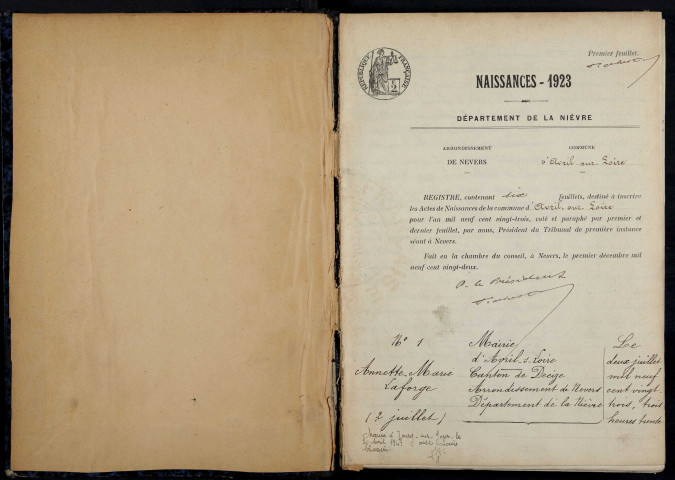 Premier feuillet.
RÉPUBLIQUE FRANÇAISE
NAISSANCES - 1923
DÉPARTEMENT DE LA NIÈVRE
ARRONDISSEMENT
DE NEVERS
COMMUNE
d'Avril-sur-Loire
REGISTRE, contenant six feuillets, destiné à inscrire
les Actes de Naissances de la commune d'Avril-sur-Loire
pour l'an mil neuf cent vingt-trois, coté et paraphé par premier et
dernier feuillet, par nous, Président du Tribunal de première instance
séant à Nevers.
Fait en la chambre du conseil, à Nevers, le premier décembre mil
neuf cent vingt-deux.
P. le Président
N° 1
Annette Marie
Laforge
(2 juillet)
Mairie
d'Avril-s-Loire
Canton de Decize
Arrondissement de Nevers
Département de la Nièvre
Le
deux juillet
mil neuf
cent vingt
trois, trois
heures trente